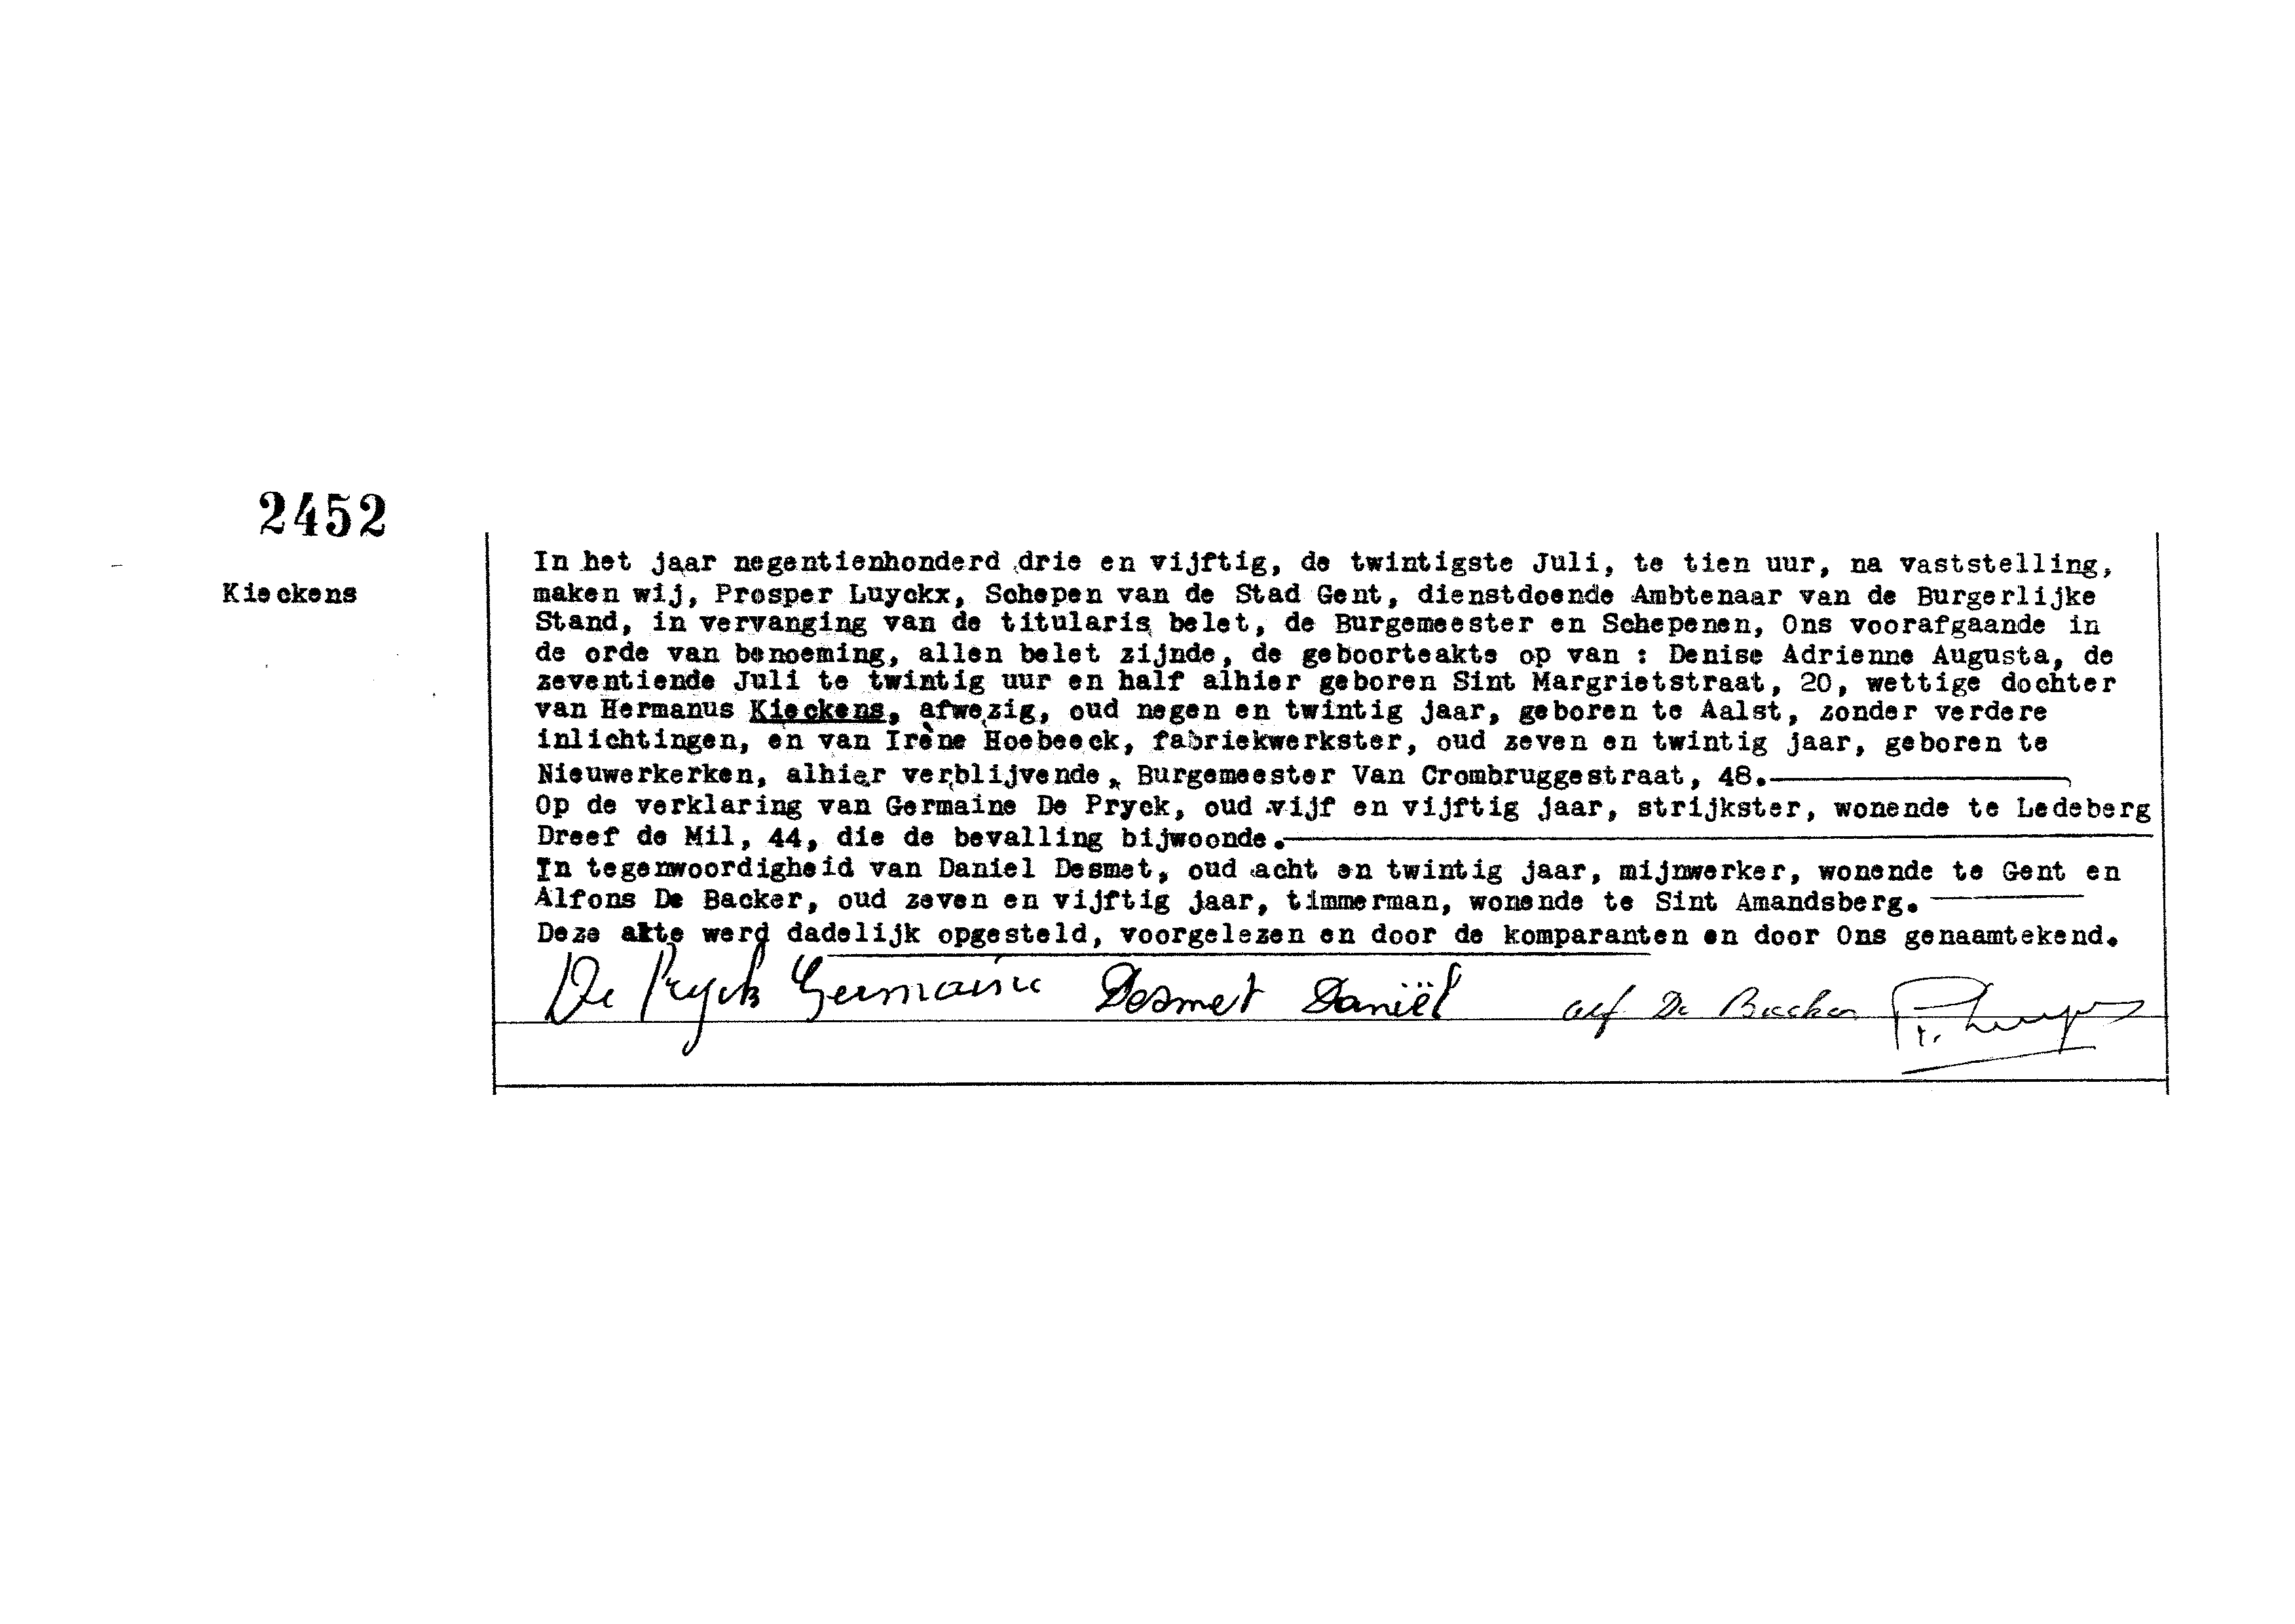 2452
Kieckens
In het jaar negentienhonderd drie en vijftig, de twintigste Juli, te tien uur, na vaststelling,
maken wij, Prosper Luyckx, Schepen van de Stad Gent, dienstdoende Ambtenaar van de Burgerlijke
Stand, in vervanging van de titularis belet, de Burgemeester en Schepenen, Ons voorafgaande in
de orde van benoeming, allen belet zijnde, de geboorteakte op van : Denise Adrienne Augusta, de
zeventiende Juli te twintig uur en half alhier geboren Sint Margrietstraat, 20, wettige dochter
van Hermanus Kieckens, afwezig, oud negen en twintig jaar, geboren te Aalst, zonder verdere
inlichtingen, en van Irène Hoebeeck, fabriekwerkster, oud zeven en twintig jaar, geboren te
Nieuwerkerken, alhier verblijvende, Burgemeester Van Crombruggestraat, 48.
Op de verklaring van Germaine De Pryck, oud vijf en vijftig jaar, strijkster, wonende te Ledeberg
Dreef de Mil, 44, die de bevalling bijwoonde.
In tegenwoordigheid van Daniel Desmet, oud acht en twintig jaar, mijnwerker, wonende te Gent en
Alfons De Backer, oud zeven en vijftig jaar, timmerman, wonende te Sint Amandsberg.
Deze akte werd dadelijk opgesteld, voorgelezen en door de komparanten en door Ons genaamtekend.
De Pryck Germaine Desmet Daniël Alf. De Backer